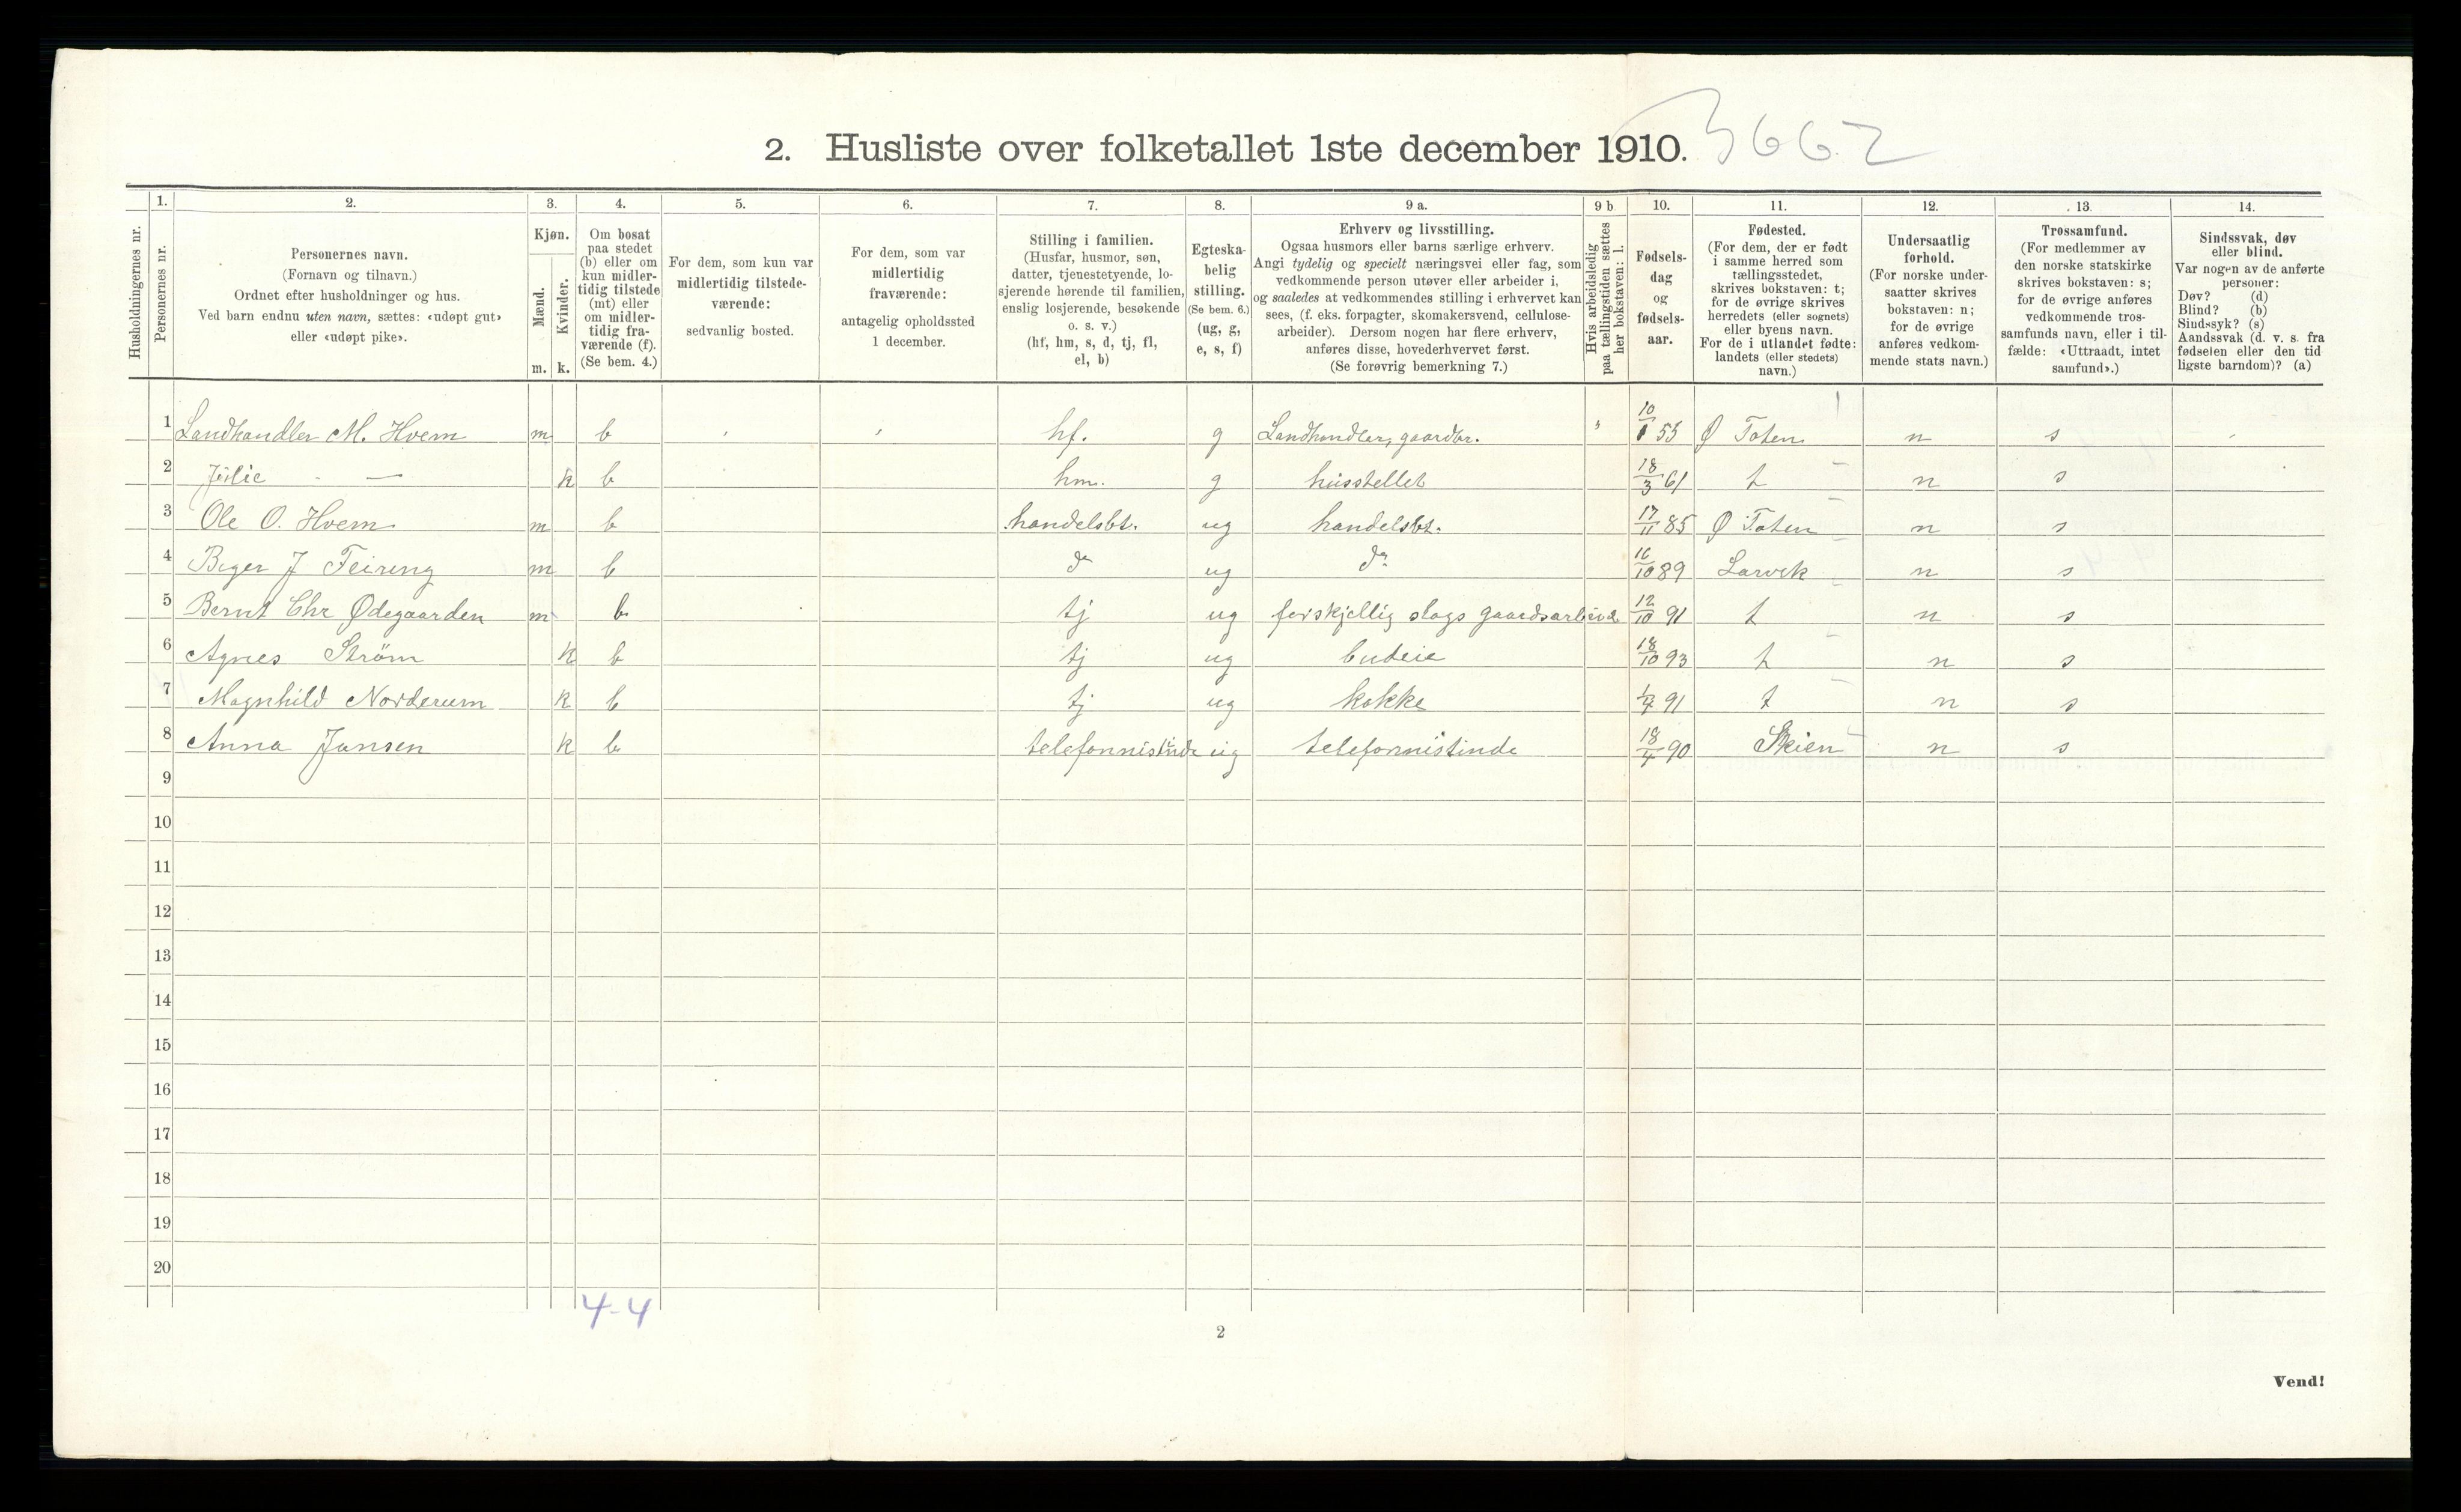 2. Husliste over folketallet 1ste december 1910. 3662
Husholdningernes nr.
1.
Personernes nr.
2.
Personernes navn.
(Fornavn og tilnavn.)
Ordnet efter husholdninger og hus.
Ved barn endnu uten navn, sættes: «udøpt gut»
eller «udøpt pike».
3.
Kjøn.
Mænd.
Kvinder.
m. k.
4.
Om bosat
paa stedet
(b) eller om
kun midler-
tidig tilstede
(mt) eller
om midler-
tidig fra-
værende (f).
(Se bem. 4.)
5.
For dem, som kun var
midlertidig tilstede-
værende:
sedvanlig bosted.
6.
For dem, som var
midlertidig
fraværende:
antagelig opholdssted
1 december.
7.
Stilling i familien.
(Husfar, husmor, søn,
datter, tjenestetyende, lo-
sjerende hørende til familien,
enslig losjerende, besøkende
o. s. v.)
(hf, hm, s, d, tj, fl,
el, b)
8.
Egteska-
belig
stilling.
(Se bem. 6.)
(ug, g,
e, s, f)
9 a.
Erhverv og livsstilling.
Ogsaa husmors eller barns særlige erhverv.
Angi tydelig og specielt næringsvei eller fag, som
vedkommende person utøver eller arbeider i,
og saaledes at vedkommendes stilling i erhvervet kan
sees, (f. eks. forpagter, skomakersvend, cellulose-
arbeider). Dersom nogen har flere erhverv,
anføres disse, hovederhvervet først.
(Se forøvrig bemerkning 7.)
9 b
Hvis arbeidsledig
paa tællingstiden sættes
her bokstaven: l.
10.
Fødsels-
dag
og
fødsels-
aar.
11.
Fødested.
(For dem, der er født
i samme herred som
tællingsstedet,
skrives bokstaven: t;
for de øvrige skrives
herredets (eller sognets)
eller byens navn.
For de i utlandet fødte:
landets (eller stedets)
navn.)
12.
Undersaatlig
forhold.
(For norske under-
saatter skrives
bokstaven: n;
for de øvrige
anføres vedkom-
mende stats navn.)
13.
Trossamfund.
(For medlemmer av
den norske statskirke
skrives bokstaven: s;
for de øvrige anføres
vedkommende tros-
samfunds navn, eller i til-
fælde: «Uttraadt, intet
samfund».)
14.
Sindssvak, døv
eller blind.
Var nogen av de anførte
personer:
Døv? (d)
Blind? (b)
Sindssyk? (s)
Aandssvak (d. v. s. fra
fødselen eller den tid
ligste barndom)? (a)
1 Landhandler M. Hvem m b hf. g Landhandler, gaardbr. 10/1 55 Ø Toten n s
2 Julie - — k b hm. g husstellet 18/3 61 t n s
3 Ole O. Hvem m b handelsbt. ug handelsbt. 17/11 85 Ø Toten n s
4 Birger J Feiring m b do ug do 16/10 89 Larvik n s
5 Bernt Chr Ødegaarden m b tj ug forskjellig slags gaardsarbeide 12/10 91 t n s
6 Agnes Strøm k b tj ug budeie 18/10 93 t n s
7 Magnhild Norderum k b tj ug kokke 1/7 91 t n s
8 Anna Jansen k b telefonnistinde ug telefonnistinde 18/4 90 Skien n s
9
10
11
12
13
14
15
16
17
18
19
20
4-4
2
Vend!